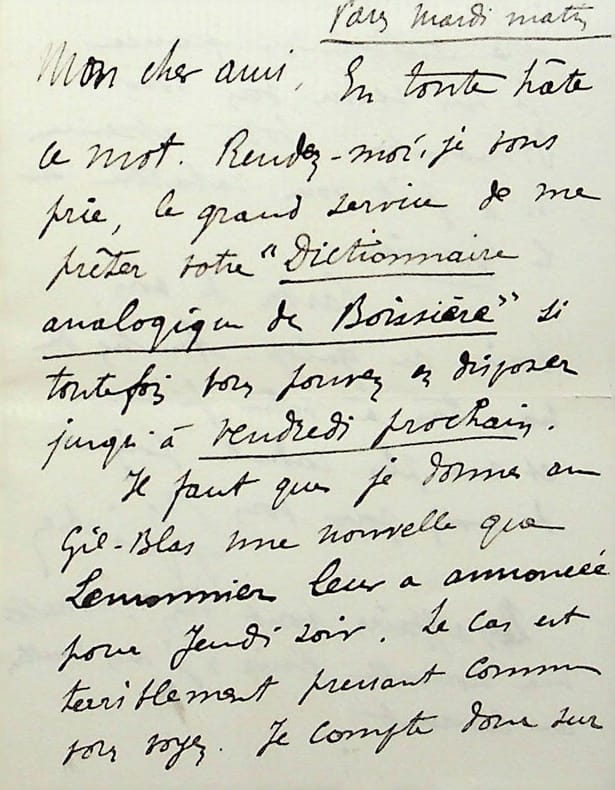 Paris mardi matin
Mon cher ami, En toute hâte
ce mot. Rendez-moi, je vous
prie, le grand service de me
prêter votre "Dictionnaire
analogique de Boissière" si
toutefois vous pouvez en disposer
jusqu'à vendredi prochain.
Il faut que je donne au
Gil-Blas une nouvelle que
Lemonnier leur a annoncée
pour Jeudi soir. Le cas est
terriblement pressant comme
vous voyez. Je compte donc sur